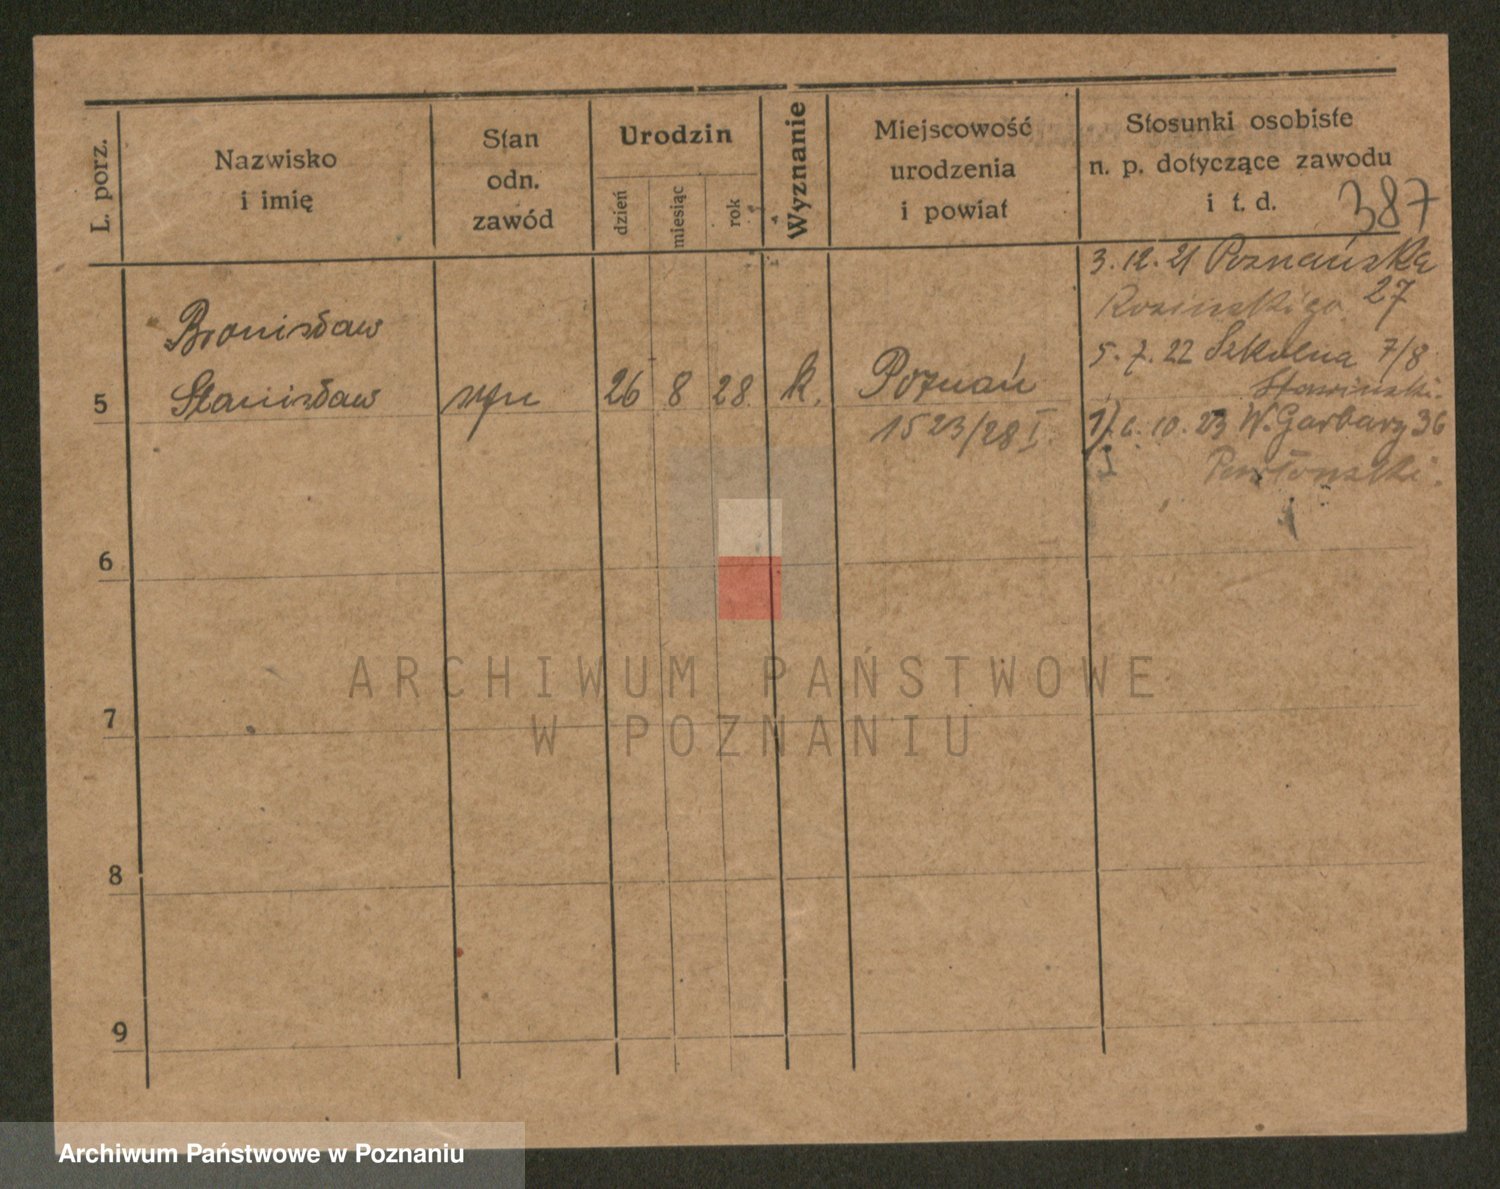 L. porz.
Nazwisko
i imię
Stan
odn.
zawód
Urodzin
dzień
miesiąc
rok
Wyznanie
Miejscowość
urodzenia
i powiat
Stosunki osobiste
n. p. dotyczące zawodu
i t. d.
387
3.12.21 Poznańska
27
5.7.22 Szkolna 7/8
1) 6.10.23 W. Garbary 36
Bronisław
5 Stanisław syn 26 8 28 k. Poznań
1523/28 I.
6
7
8
9
ARCHIWUM PAŃSTWOWE
W POZNANIU
Archiwum Państwowe w Poznaniu